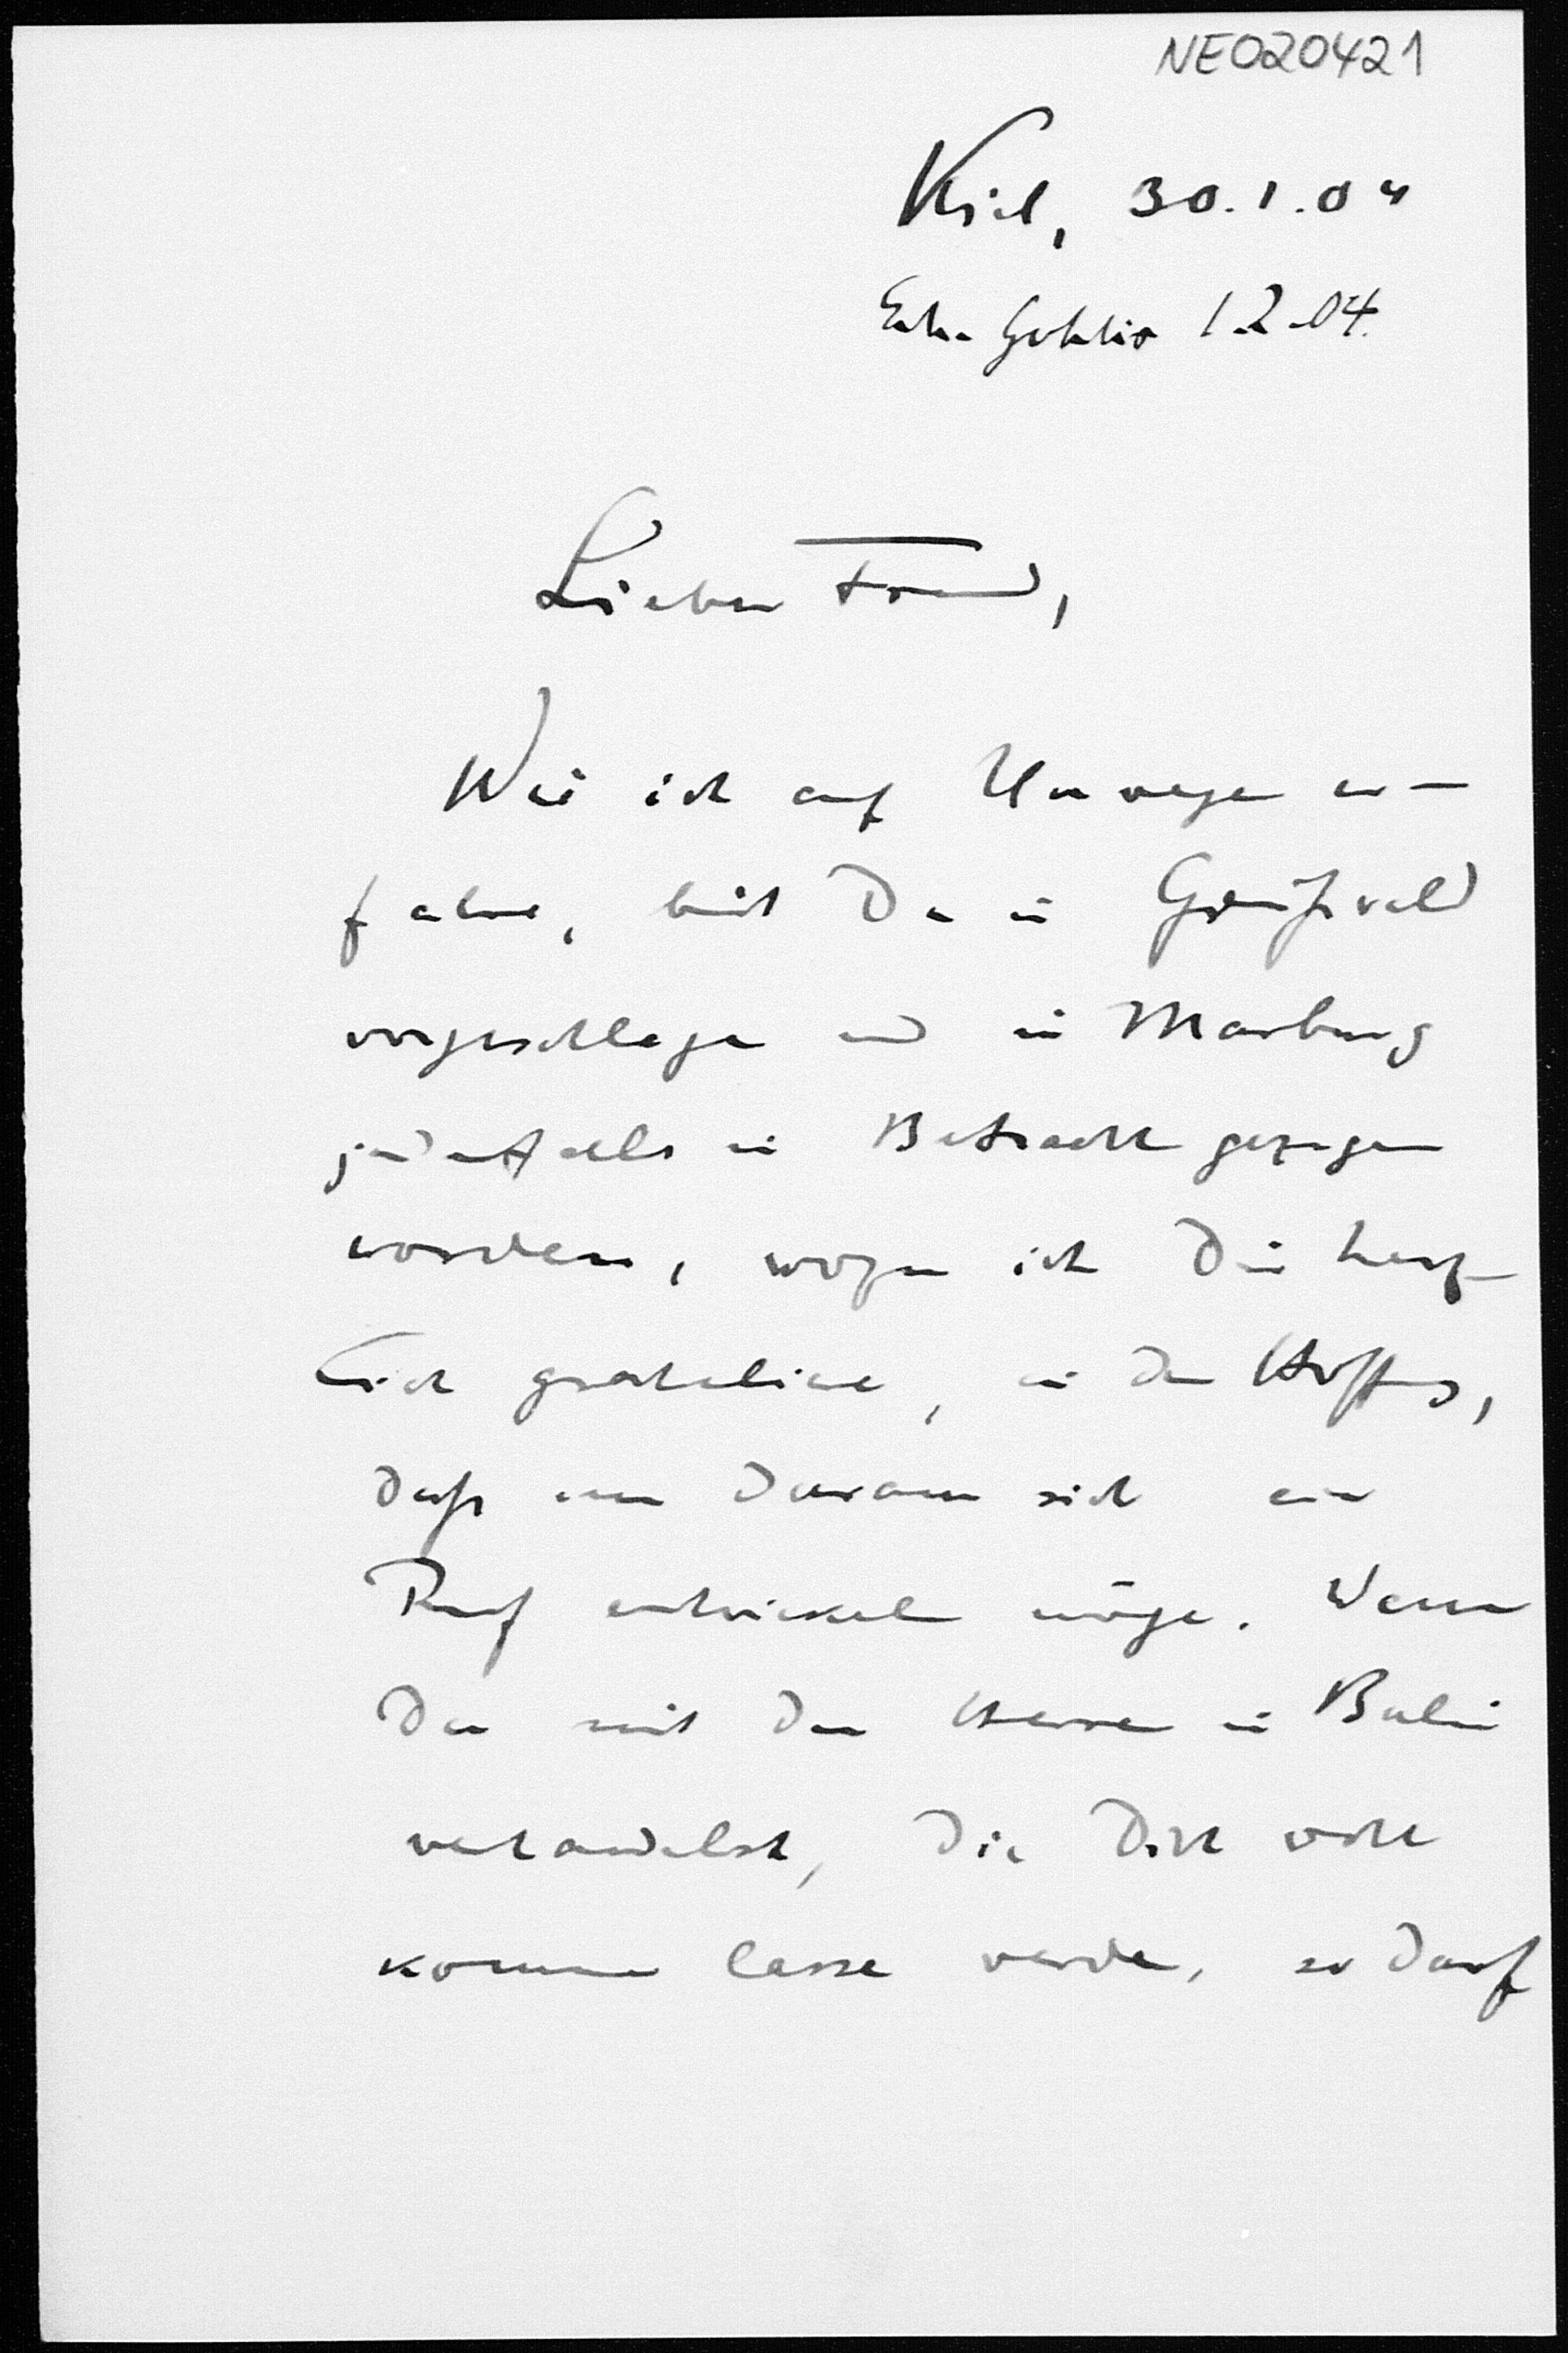 NE020421
Kiel, 30.1.04
Erh. Gohlis 1.2.04.
Lieber Freund,
Wie ich auf Umwegen er-
fahre, bist Du in Greifswald
vorgeschlagen und in Marburg
jedenfalls in Betracht gezogen
worden, wozu ich Dir herz-
lich gratuliere, in der Hoffnung,
daß nun daraus sich ein
Ruf entwickeln möge. Wenn
Du mit den Herren in Berlin
verhandelst, die Dich wohl
kommen lassen werden, so darf